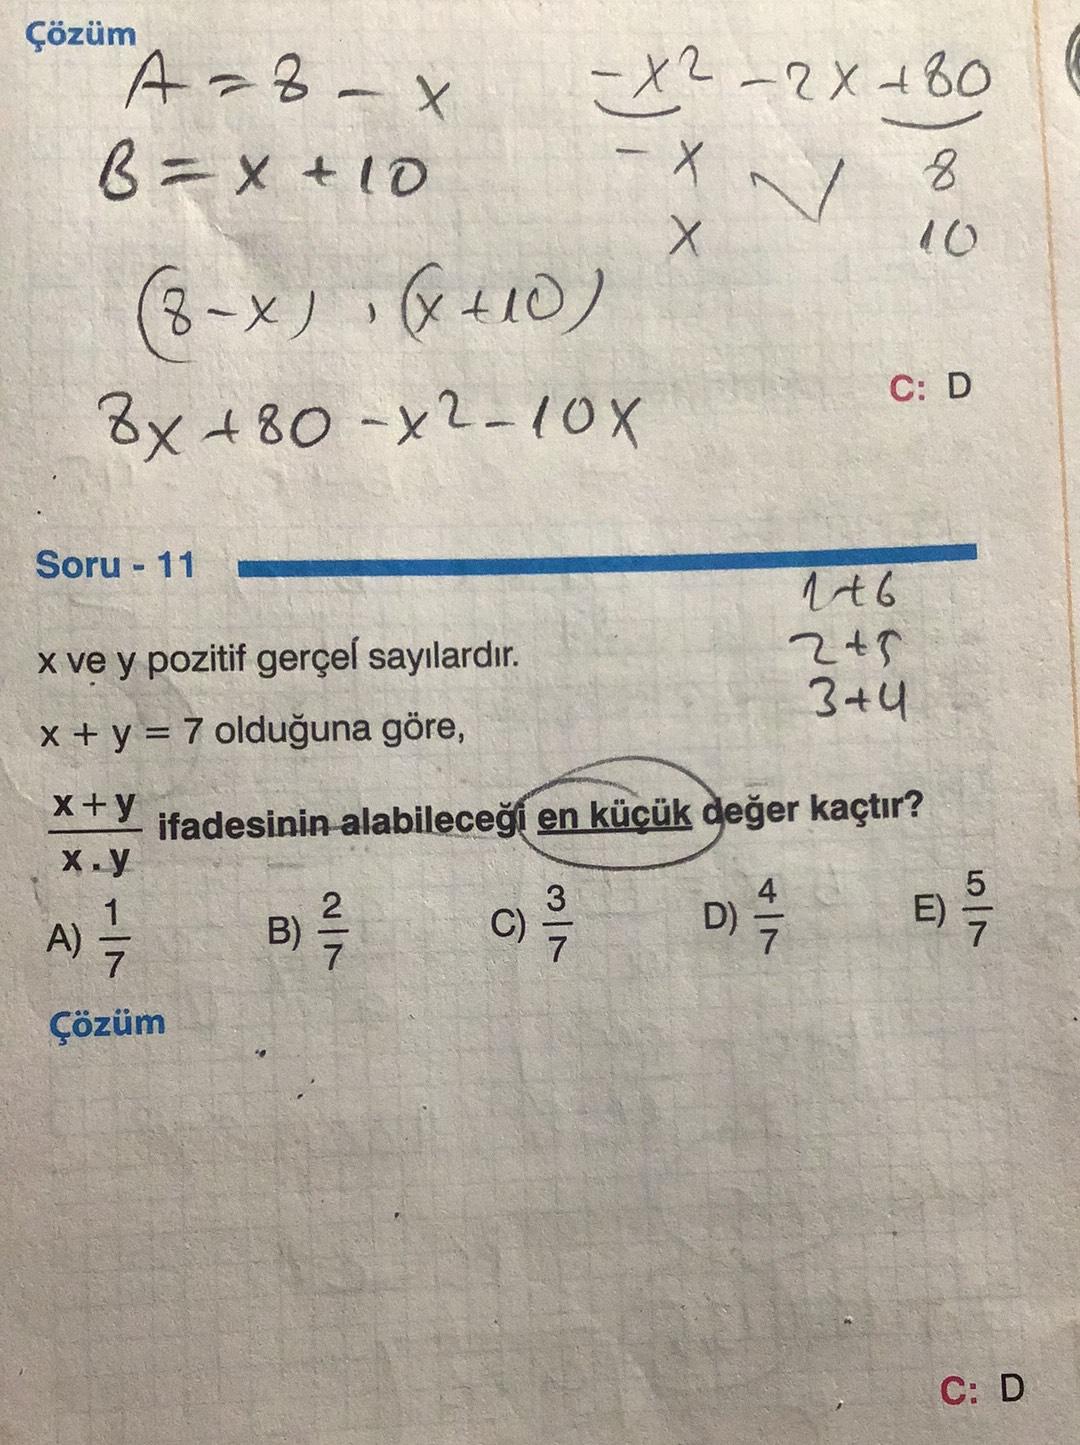 Çözüm
A = 8 - x
-x² - 2x + 80
B = x + 10
-x 8
x 10
(8-x) . (x+10)
C: D
8x + 80 - x² - 10x
Soru - 11
1+6
2+5
3+4
x ve y pozitif gerçel sayılardır.
x + y = 7 olduğuna göre,
x+y / x.y ifadesinin alabileceği en küçük değer kaçtır?
A) 1/7 B) 2/7 C) 3/7 D) 4/7 E) 5/7
Çözüm
C: D